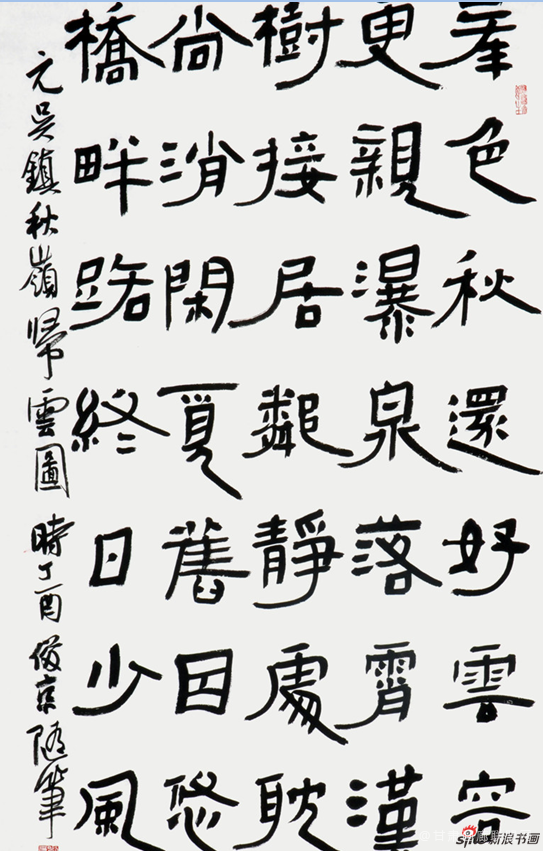 峯色秋還好雲容
更親瀑泉落霄漢
樹接居鄰靜處耽
尚消閑覓舊因悠
橋畔路終日少風
元吳鎮秋嶺歸雲圖 時丁酉俊京隨筆
新浪书画